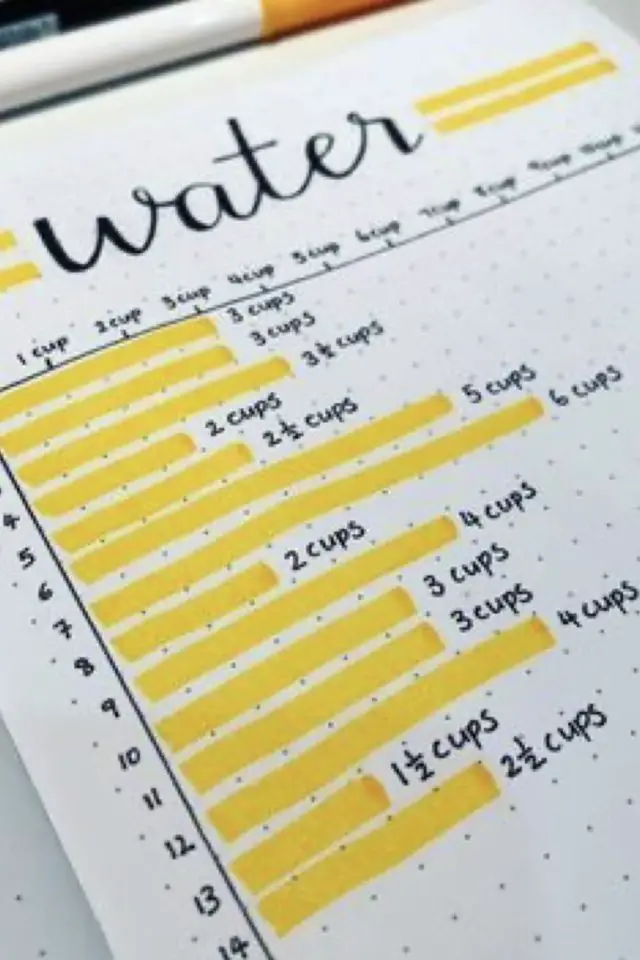 water
1 cup 2 cup 3 cup 4 cup 5 cup 6 cup 7 cup 8 cup 9 cup 10 cup
3 cups
3 cups
3½ cups
4 2 cups
5 2½ cups
6 5 cups
7 6 cups
8 2 cups
9 4 cups
10 3 cups
11 3 cups
12 4 cups
13 1½ cups
14 2½ cups